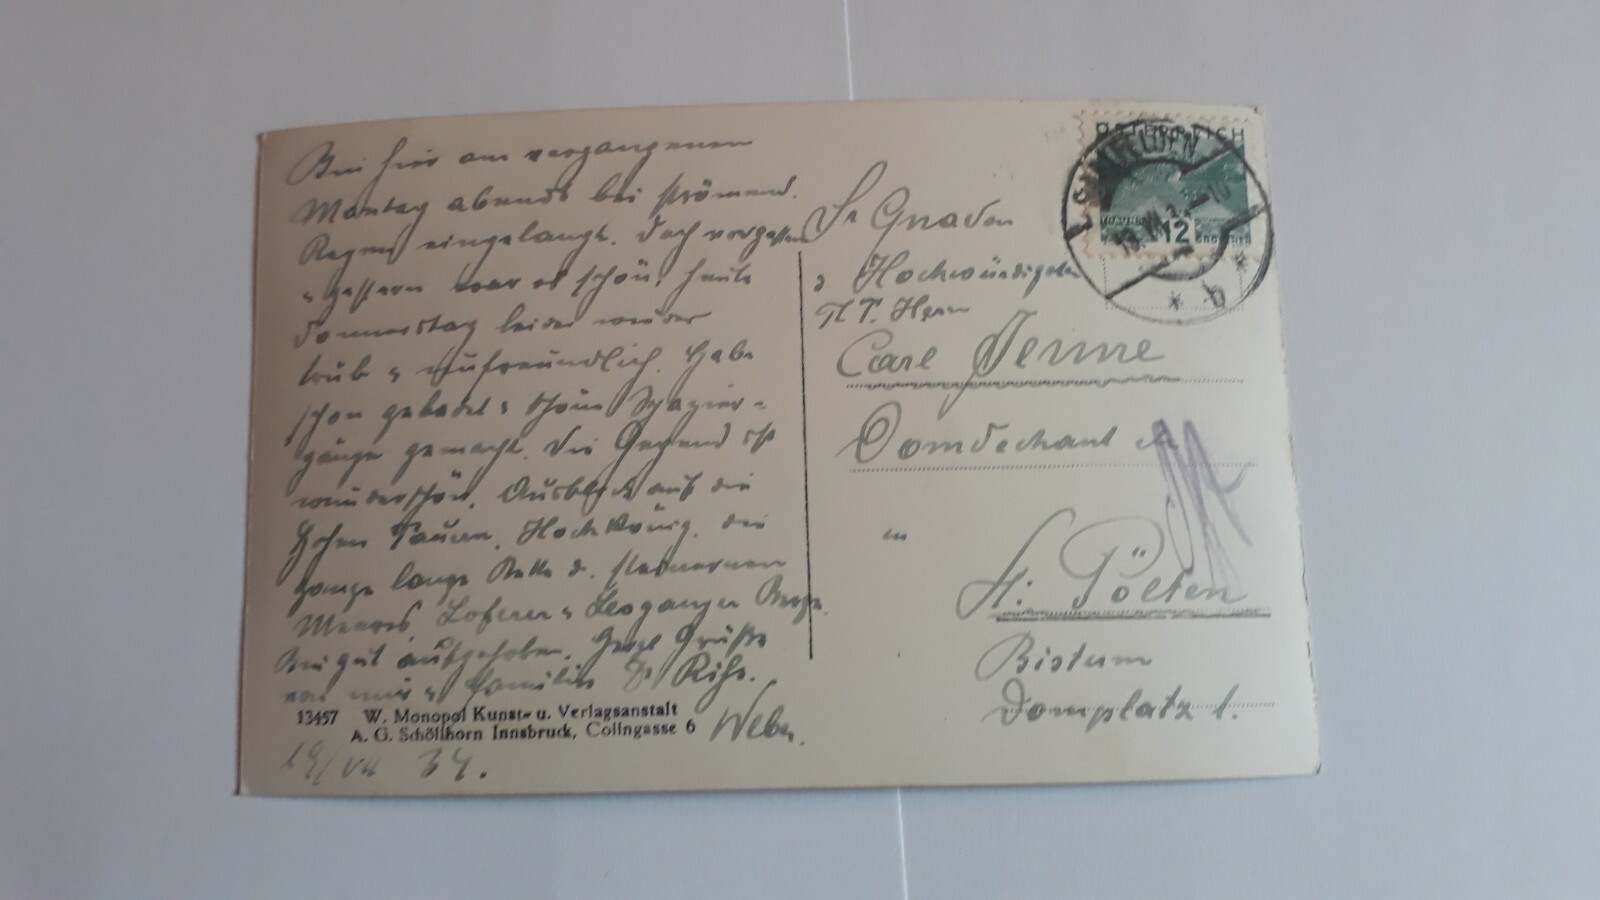 Bin hier am vergangenen
Montag abends bei strömend.
Regen eingelangt. Doch vorgestern
u gestern war es schön, heute
Donnerstag leider wieder
trüb u unfreundlich. Habe
schon gebadet u schöne Spazier-
gänge gemacht. Die Gegend ist
wunderschön. Ausblick auf die
Hohen Tauern, Hochkönig, die
ganze lange Kette d. steinernen
Meeres, Loferer u Leoganger Berge.
Bin gut aufgehoben. Herzl Grüße
von mir u Familie Dr Rihs.
Weber.
19/VII 34.
13457 W. Monopol Kunst- u. Verlagsanstalt
A. G. Schöllhorn Innsbruck, Colingasse 6
ÖSTERREICH
SAALFELDEN
12
GROSCHEN
* b *
Sr Gnaden
d Hochwürdigsten
P. T. Herrn
Carl
Domdechant
in
St. Pölten
Bistum
Domplatz 1.